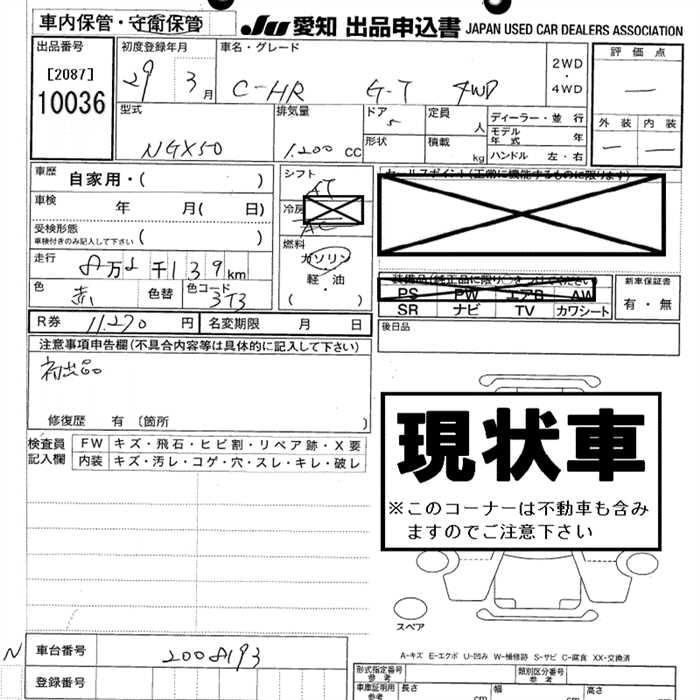 車内保管・守衛保管
JU 愛知 出品申込書 JAPAN USED CAR DEALERS ASSOCIATION
出品番号
[2087]
10036
初度登録年月
29 3月
車名・グレード
C-HR G-T 4WD
2WD
・
4WD
評価点
―
外装 内装
― ―
型式
NGX50
排気量
1.200 CC
ドア
5
形状
定員
人
積載
kg
ディーラー・並行
モデル年式 年
ハンドル 左・右
車歴 自家用・( )
車検 年 月( 日)
受検形態
車検付きのみ記入して下さい ( )
走行 8万2千139km
色 赤 色替 色コード 3T3
シフト AT
冷房 AC
燃料
ガソリン
軽・油
( )
セールスポイント(正常に機能するものに限ります)
装備品(純正品に限り○をつけてください)
PS PW エアB AW
SR ナビ TV カワシート
新車保証書
有・無
後日品
R券 11.270 円 名変期限 月 日
注意事項申告欄(不具合内容等は具体的に記入して下さい)
初出品
修復歴 有〔箇所 〕
検査員記入欄
FW キズ・飛石・ヒビ割・リペア跡・X要
内装 キズ・汚レ・コゲ・穴・スレ・キレ・破レ
現状車
※このコーナーは不動車も含み
ますのでご注意下さい
スペア
A-キズ E-エクボ U-凹み W-補修跡 S-サビ C-腐食 XX-交換済
N 車台番号 2008193
登録番号
形式指定番号 参考
類別区分番号 参考
車庫証明用 参考 長さ cm 幅 cm 高さ cm